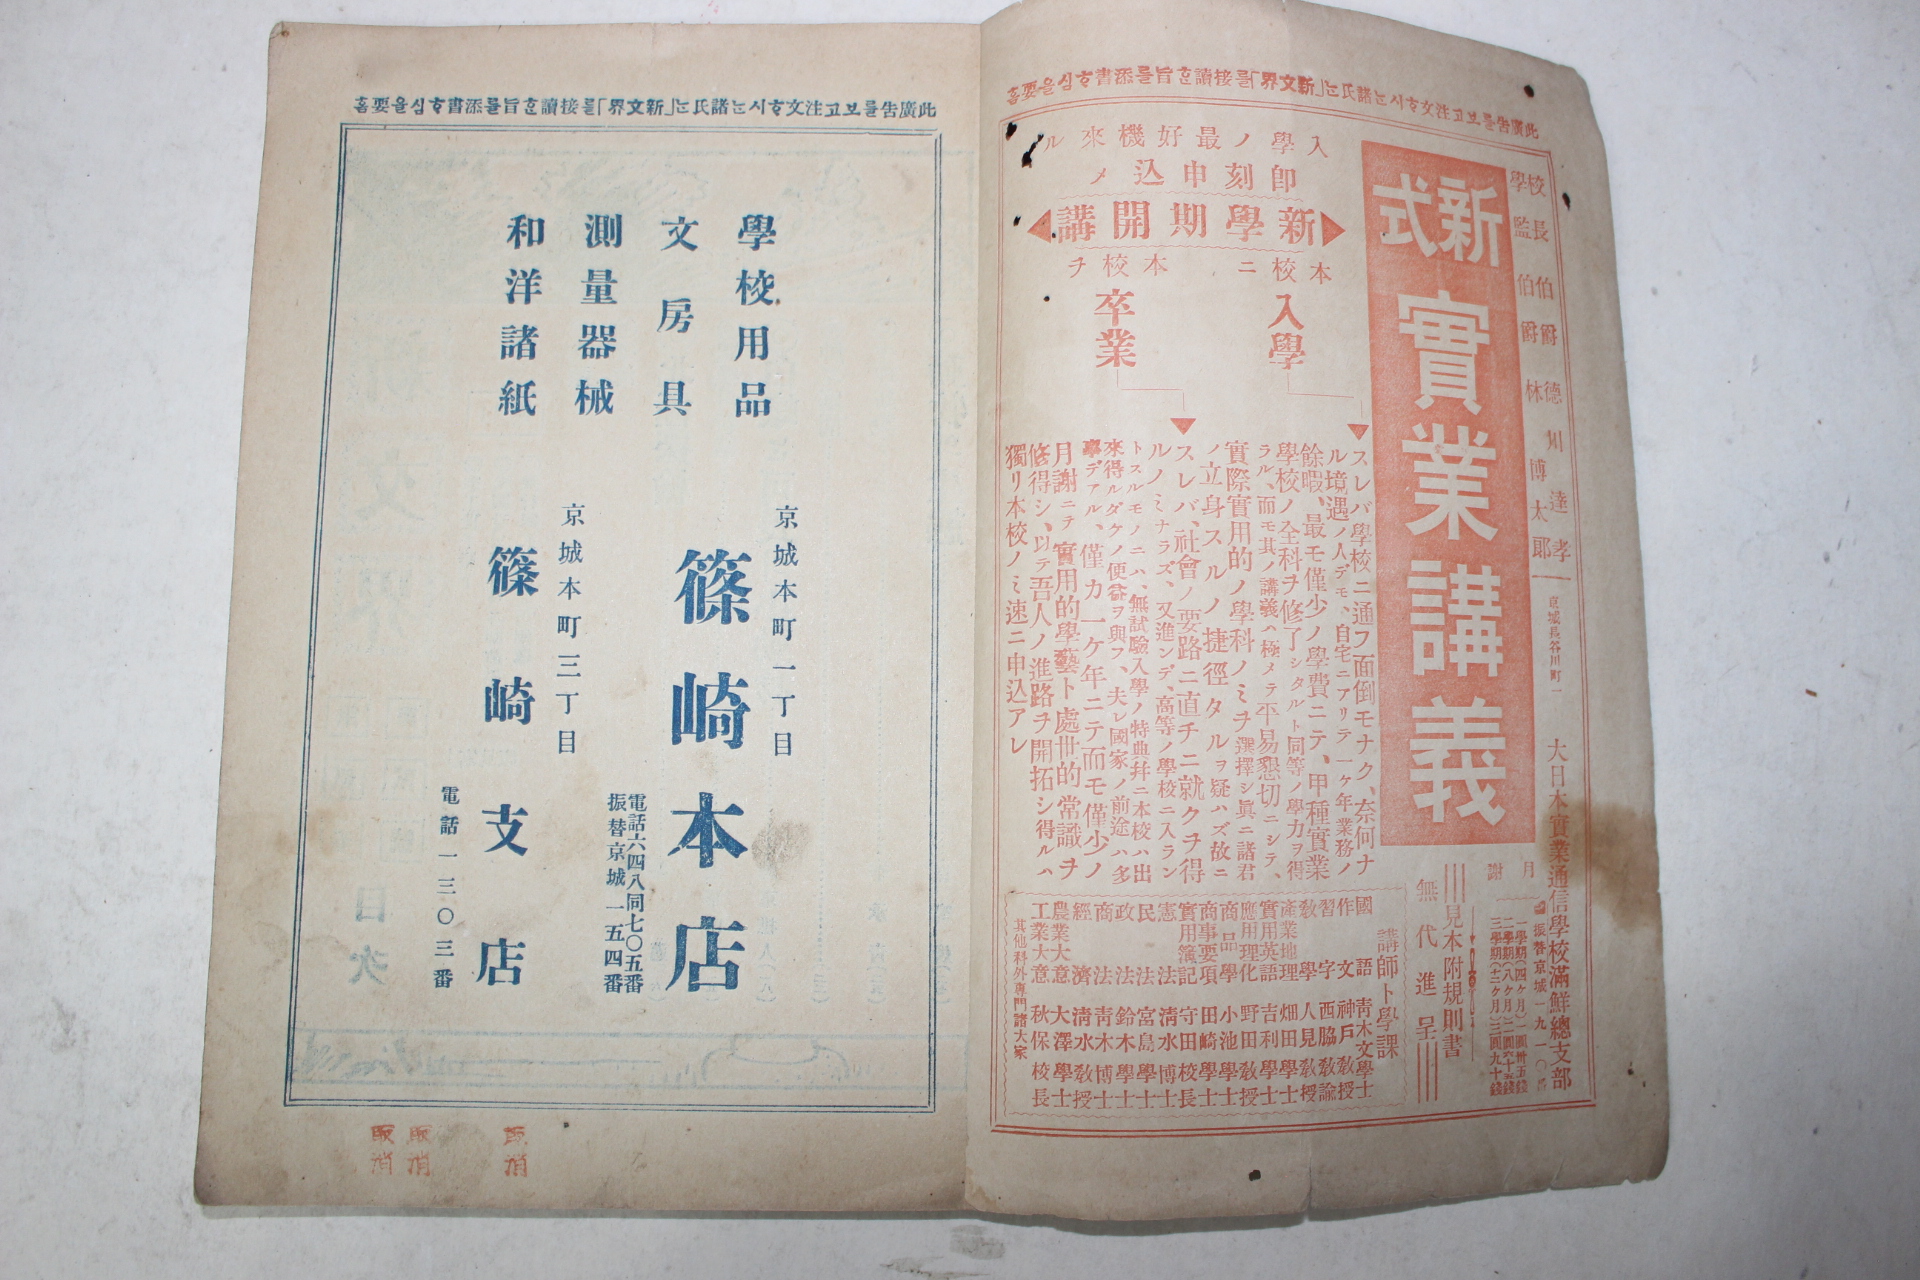 此廣告를보고注文하시는諸氏는「新文界」를接讀한旨를添書하심을要홈
校長 伯爵 德川達孝
學監 伯爵 林博太郎
京城長谷川町一
大日本實業通信學校滿鮮總支部
振替京城一九一〇番
新式
實業講義
月謝
一學期(四ヶ月)一圓卅五錢
二學期(八ヶ月)二圓六十五錢
三學期(十二ヶ月)三圓九十錢
見本附規則書
無代進呈
入學ノ最好機來ル
即刻申込メ
新學期開講
本校ニ
入學
スレバ學校ニ通フ面倒モナク、奈何ナ
ル境遇ノ人デモ、自宅ニアリテ一ケ年業務ノ
餘暇、最モ僅少ノ學費ニテ、甲種實業
學校ノ全科ヲ修了シタルト同等ノ學力ヲ得
ラル、而モ其ノ講義ハ極メテ平易懇切ニシテ、
實際實用的ノ學科ノミヲ選擇シ眞ニ諸君
ノ立身スルノ捷徑タルヲ疑ハズ故ニ
本校ヲ
卒業
スレバ、社會ノ要路ニ直チニ就クヲ得
ルノミナラズ、又進ンデ、高等ノ學校ニ入ラン
トスルモノニハ、無試驗入學ノ特典幷ニ本校ハ出
來得ルダケノ便益ヲ與フ、夫レ國家ノ前途ハ多
事デアル、僅カ一ケ年ニテ而モ僅少ノ
月謝ニテ實用的學藝ト處世的常識ヲ
修得シ、以テ吾人ノ進路ヲ開拓シ得ルハ
獨リ本校ノミ速ニ申込アレ
講師ト學課
國語 靑木文學士
作文 神戶敎授
習字 西脇敎諭
敎學 人見敎授
產業地理 畑田學士
實用英語 吉利學士
應用理化 野田敎授
商品學 小池學士
商事要項 田崎學士
實用簿記 守田校長
憲法 淸水博士
民法 宮島學士
政法 鈴木學士
商法 靑木博士
經濟 淸水敎授
農業大意 大澤學士
工業大意 秋保校長
其他科外專門諸大家
此廣告를보고注文하시는諸氏는「新文界」를接讀한旨를添書하심을要홈
學校用品
文房具
測量器械
和洋諸紙
京城本町一丁目
篠崎本店
電話六四八同七〇五番
振替京城一五四番
京城本町三丁目
篠崎支店
電話一三〇三番
取消
取消
取消